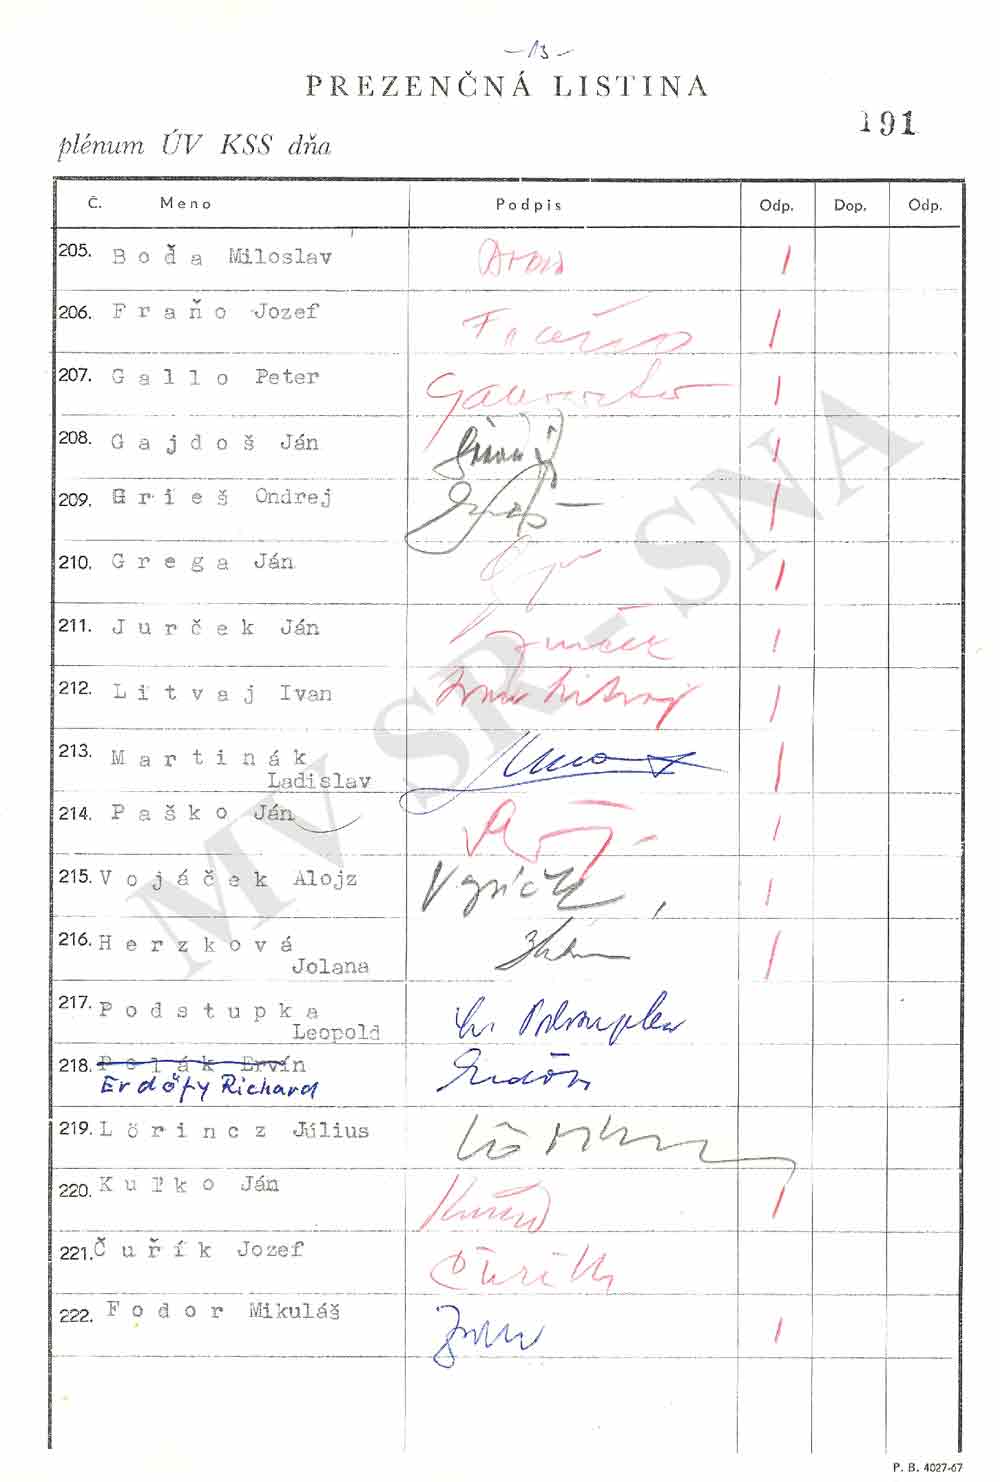 -13-
PREZENČNÁ LISTINA
191
plénum ÚV KSS dňa
Č. Meno Podpis Odp. Dop. Odp.
205. Boďa Miloslav
206. Fraňo Jozef
207. Gallo Peter
208. Gajdoš Ján
209. Grieš Ondrej
210. Grega Ján
211. Jurček Ján Jurček
212. Litvaj Ivan Ivan Litvaj
213. Martinák
Ladislav
214. Paško Ján
215. Vojáček Alojz
216. Herzková
Jolana
217. Podstupka
Leopold
218. Polák Ervín
Erdőfy Richard
219. Lörincz Július
220. Kuľko Ján
221. Čuřík Jozef Čuřík
222. Fodor Mikuláš
MV SR - SNA
P. B. 4027-67